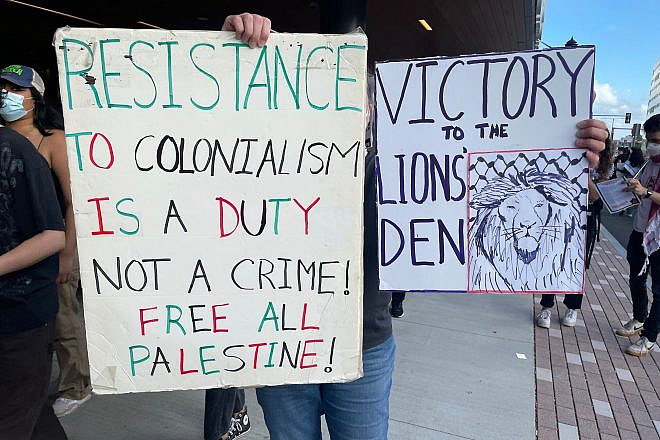 RESISTANCE
TO COLONIALISM
IS A DUTY
NOT A CRIME!
FREE ALL
PALESTINE!
VICTORY
TO THE
LIONS'
DEN